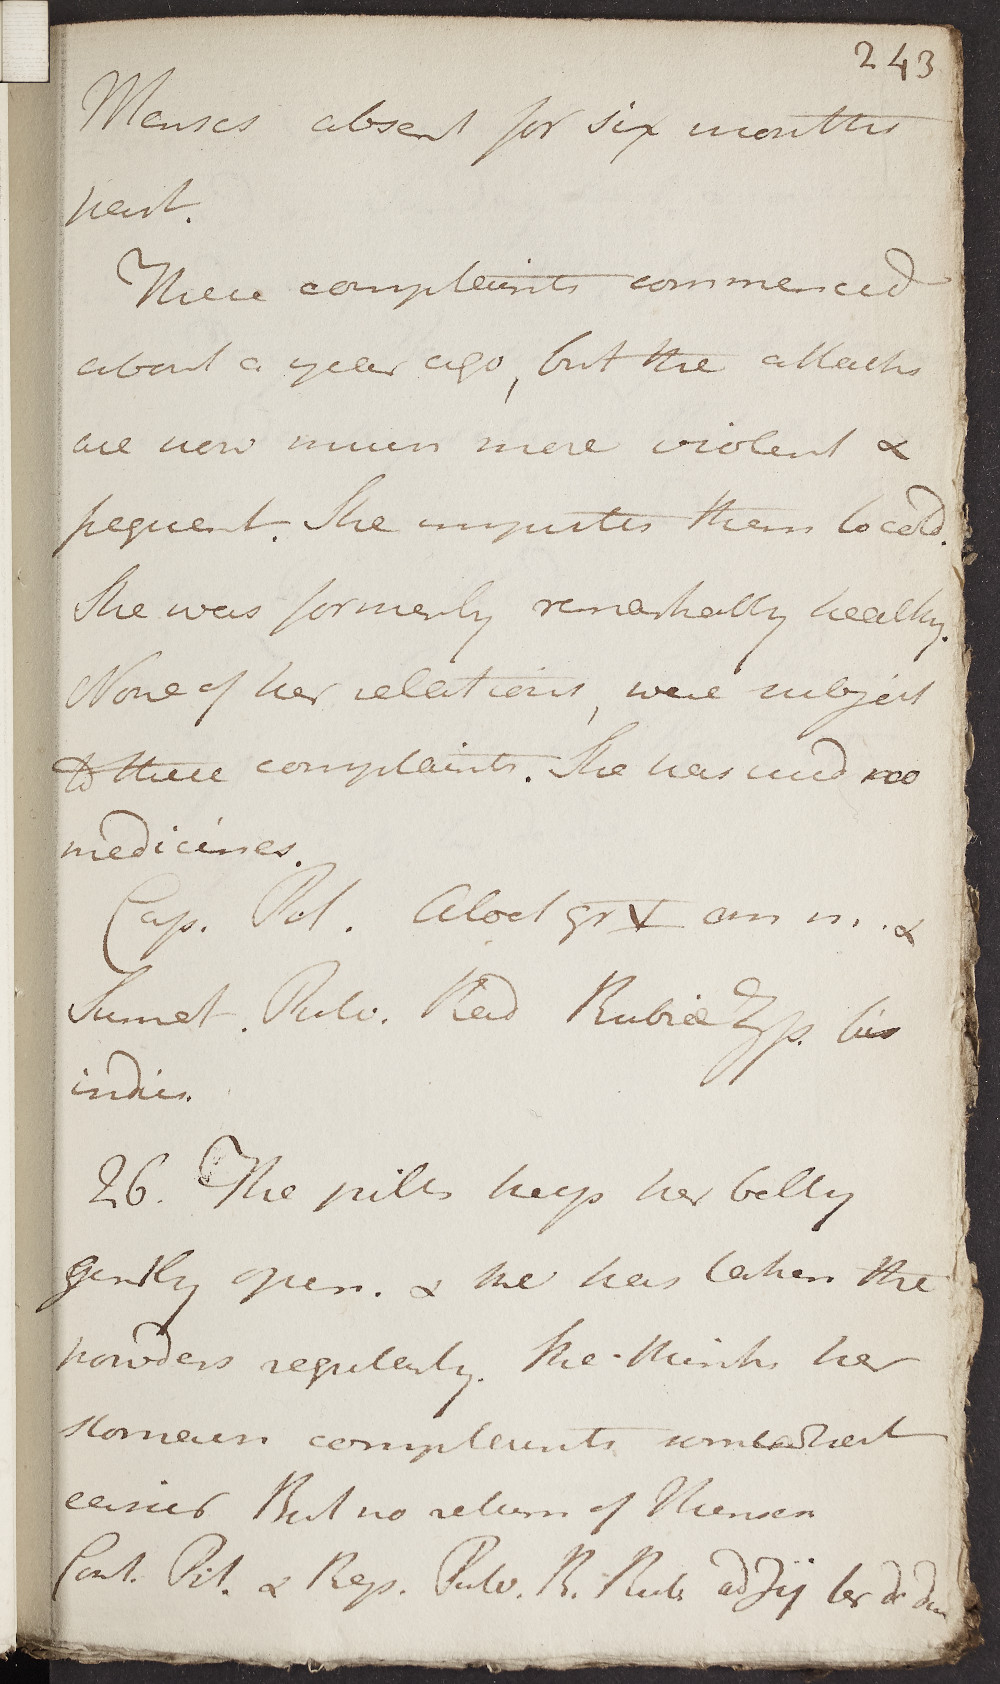 243
Menses absent for six months
past.
These complaints commenced
about a year ago, but the attacks
are now much more violent &
frequent. She imputes them to cold.
She was formerly remarkably healthy.
None of her relations, were subject
to these complaints. She has used no
medicines.
Cap. Pil. Aloet gr V omn n. &
Sumat. Pulv. Rad Rubiæ ʒſs. bis
indies.
26. The pills keep her belly
gently open. & she has taken the
powders regularly. She thinks her
stomach complaints somewhat
easier But no return of Menses
Cont. Pil. & Rep. Pulv. R. Rub. ad ʒij ter de die